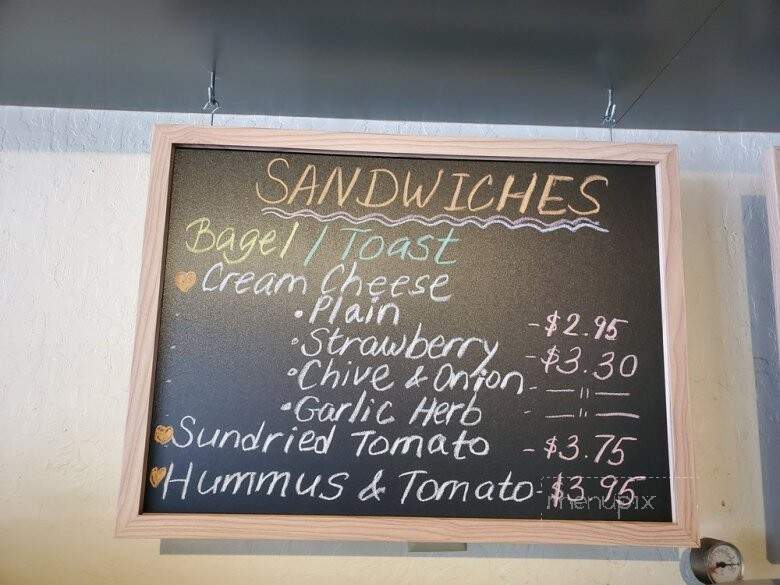 SANDWICHES
Bagel / Toast
Cream Cheese
• Plain - $2.95
• Strawberry - $3.30
• Chive & Onion - —"—
• Garlic Herb - —"—
Sundried Tomato - $3.75
Hummus & Tomato - $3.95
menupix